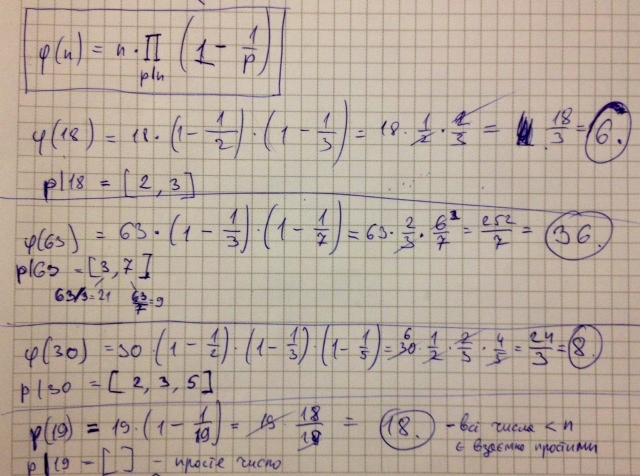 φ(n) = n · ∏ p|n (1 - 1/p)
φ(18) = 18 · (1 - 1/2) · (1 - 1/3) = 18 · 1/2 · 2/3 = 18/3 = 6.
p|18 = [2, 3]
φ(63) = 63 · (1 - 1/3) · (1 - 1/7) = 63 · 2/3 · 6²/7 = 252/7 = 36.
p|63 = [3, 7]
63/3=21 63/7=9
φ(30) = 30 · (1 - 1/2) · (1 - 1/3) · (1 - 1/5) = 6 30 · 1/2 · 2/3 · 4/5 = 24/3 = 8.
p|30 = [2, 3, 5]
φ(19) = 19 · (1 - 1/19) = 19 · 18/19 = 18. - всі числа < n
є взаємно простими
p|19 - [ ] - просте число